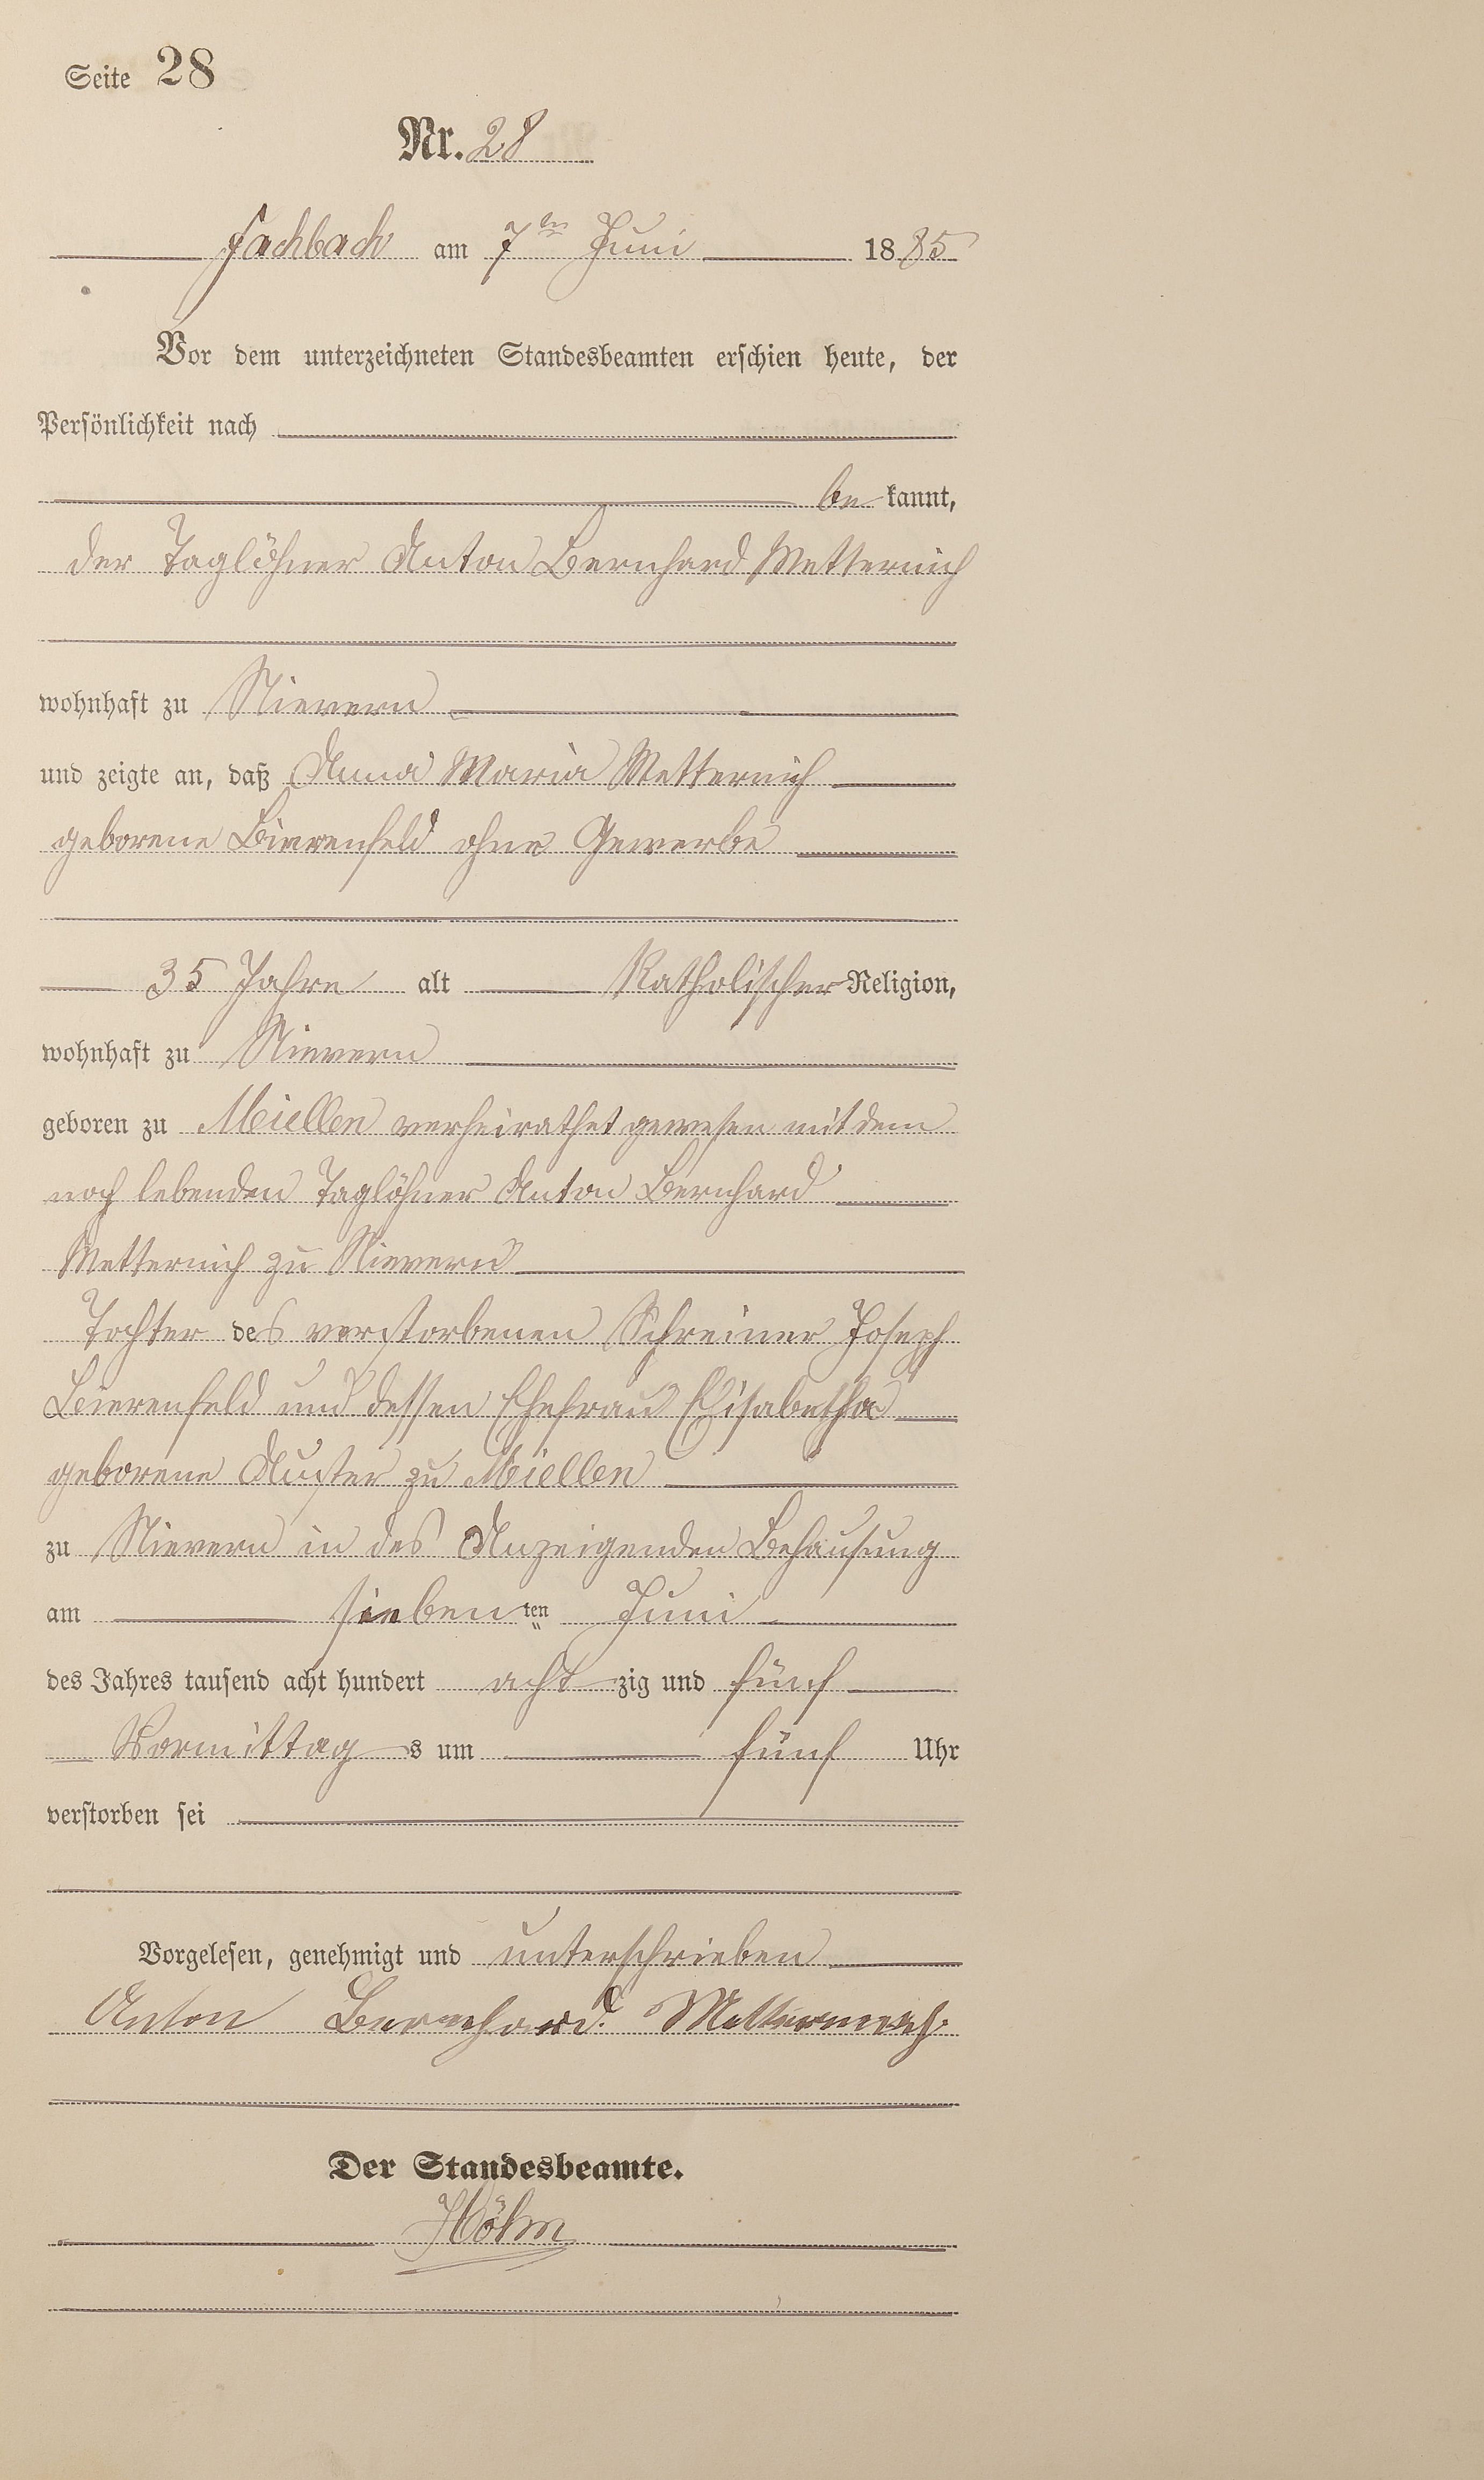 Seite 28
Nr. 28
Fachbach am 7ten Juni 1885
Vor dem unterzeichneten Standesbeamten erschien heute, der
Persönlichkeit nach
be kannt,
der Taglöhner Anton Bernhard Metternich
wohnhaft zu Nievern
und zeigte an, daß Anna Maria Metternich
geborene Bierenfeld ohne Gewerbe
35 Jahre alt Katholischer Religion,
wohnhaft zu Nievern
geboren zu Miellen verheirathet gewesen mit dem
noch lebenden Taglöhner Anton Bernhard
Metternich zu Nievern
Tochter des verstorbenen Schreiner Joseph
Bierenfeld und dessen Ehefrau Elisabetha
geborene zu Miellen
zu Nievern in des Anzeigenden Behausung
am siebenten Juni
des Jahres tausend acht hundert acht zig und fünf
Vormittag s um fünf Uhr
verstorben sei
Vorgelesen, genehmigt und unterschrieben
Anton Bernhard Metternich
Der Standesbeamte.